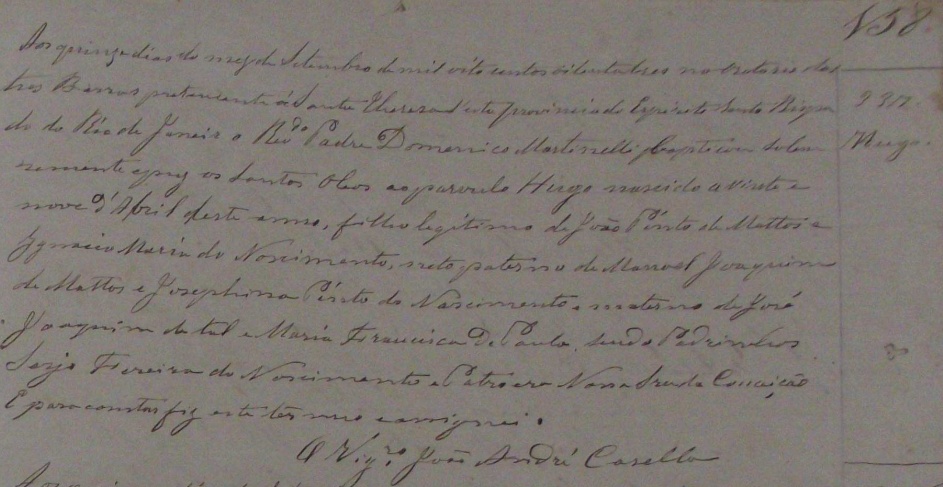 V58.
Aos quinze dias do mez de Setembro de mil oito centos oitenta tres no Oratorio das
tres Barras pertencente á Santa Thereza d'esta provincia do Espirito Santo Bispa
237.
do do Rio de Janeiro o Rdo Padre Domenico Martinelli baptizou solem
Hugo.
nemente e poz os Santos Oleos ao parvulo Hugo nascido a vinte e
nove d'Abril deste anno, filho legitimo de João Pinto de Mattos e
Ignacia Maria do Nascimento, neto paterno de Manoel Joaquim
de Mattos e Josephina Pinto do Nascimento e materno de José
Joaquim de tal e Maria Francisca De Paula, sendo Padrinhos
Ferreira do Nascimento e Nossa Snra da Conceição
E para constar fiz este termo e assignei.
O Vigro. João André Casella